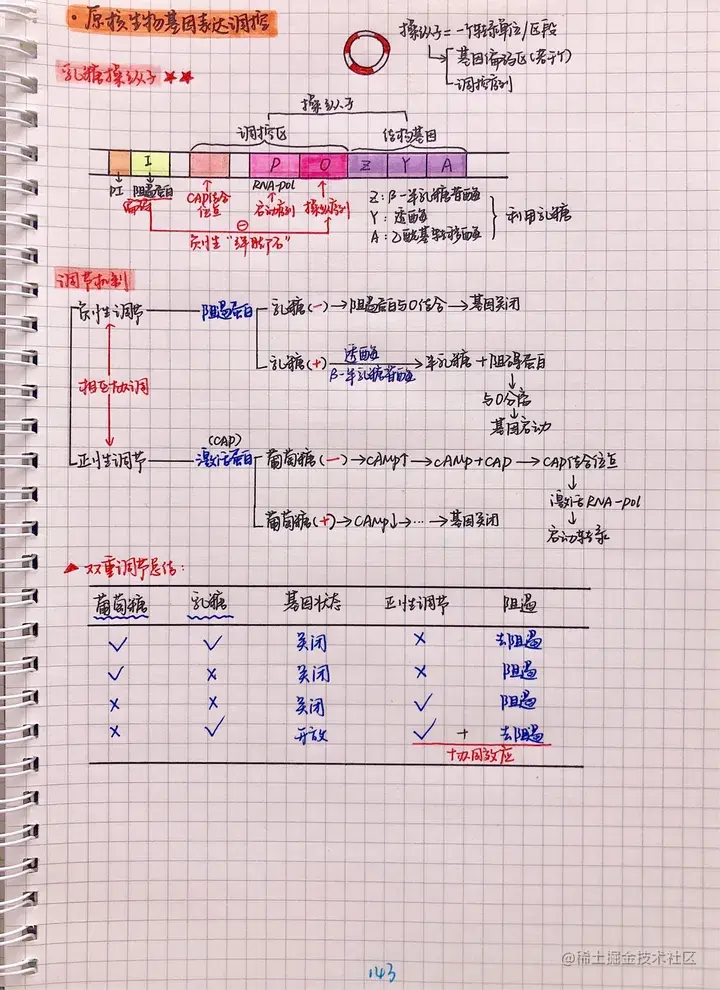 · 原核生物基因表达调控
操纵子 = 一个转录单位/区段
基因编码区(若干个)
调控序列
乳糖操纵子 ★★
操纵子
调控区 结构基因
I P O Z Y A
PI 阻遏蛋白 CAP结合位点 RNA-pol
编码 启动序列 操纵序列
Z: β-半乳糖苷酶
Y: 透酶
A: 乙酰基转移酶
利用乳糖
⊖
负性"绊脚石"
调节机制
负性调节 — 阻遏蛋白 乳糖(-) → 阻遏蛋白与O结合 → 基因关闭
乳糖(+) 透酶 β-半乳糖苷酶 → 半乳糖 + 阻碍蛋白
→ 与O分离
→ 基因启动
相互协调
正性调节 — (CAP) 激活蛋白 葡萄糖(-) → CAMP↑ → cAMP+CAP → CAP结合位点
→ 激活RNA-pol
→ 启动转录
葡萄糖(+) → CAMP↓ → … → 基因关闭
▲ 双重调节总结:
葡萄糖 乳糖 基因状态 正性调节 阻遏
✓ ✓ 关闭 × 去阻遏
✓ × 关闭 × 阻遏
× × 关闭 ✓ 阻遏
× ✓ 开放 ✓ + 去阻遏
协同效应
143
@稀土掘金技术社区